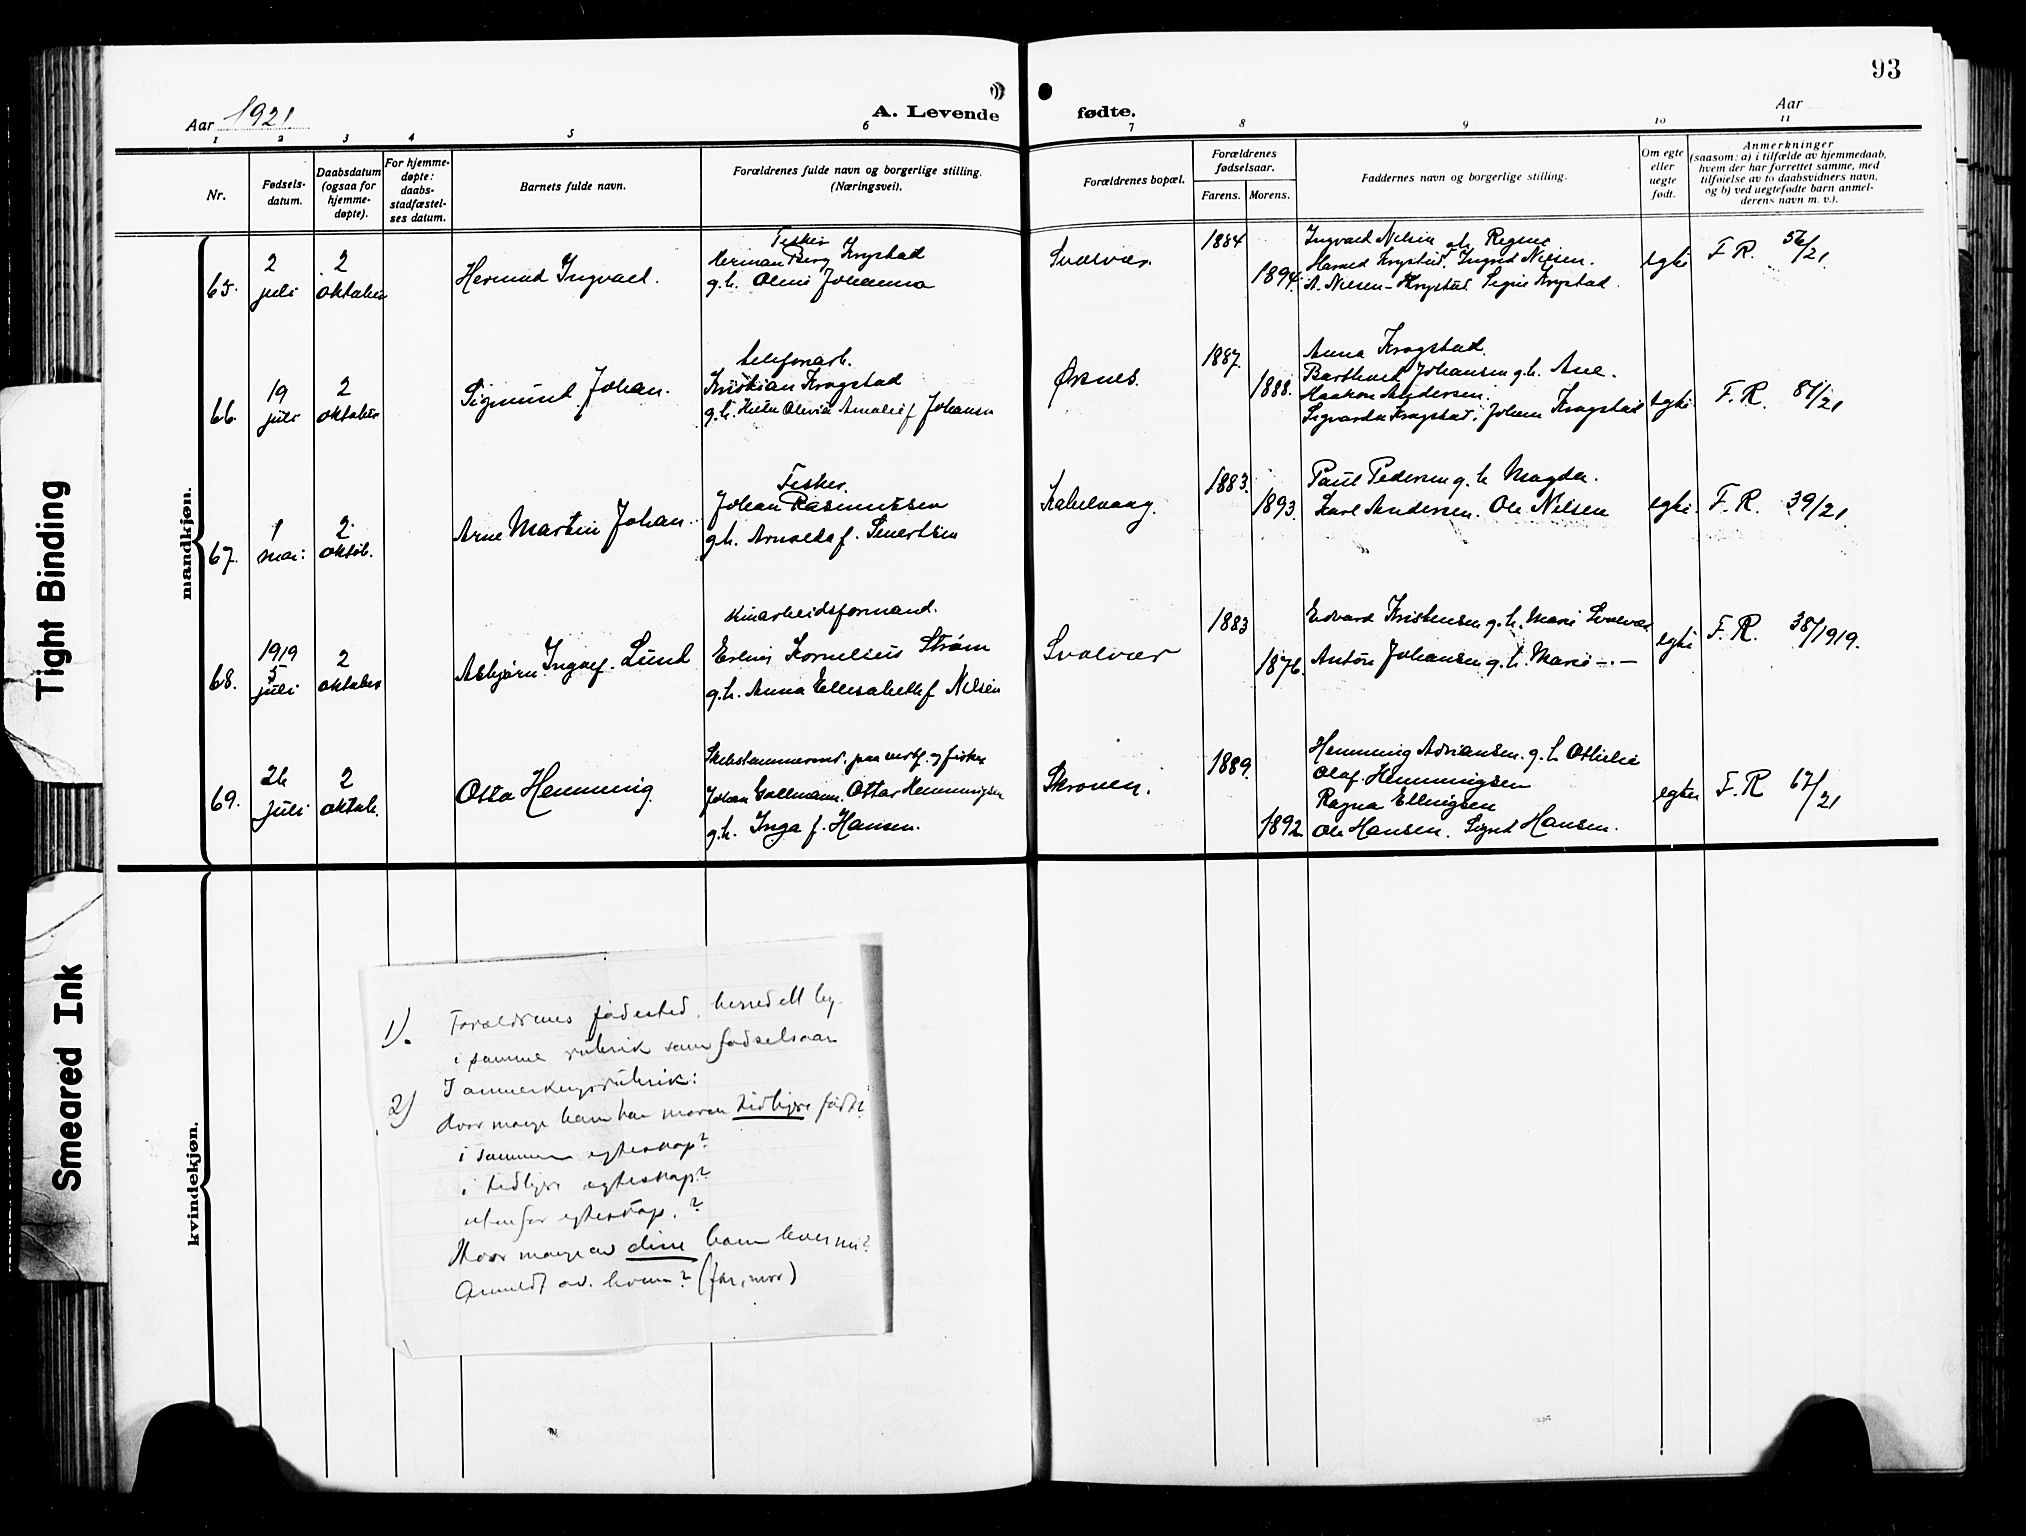 Tight Binding
Smeared Ink
93
Aar 1921
A. Levende
fødte.
Aar
1 2 3 4 5 6
7 8 9 10 11
Nr.
Fødsels-
datum.
Daabsdatum
(ogsaa for
hjemme-
døpte).
For hjemme-
døpte:
daabs-
stadfæstel-
ses datum.
Barnets fulde navn.
Forældrenes fulde navn og borgerlige stilling.
(Næringsvei).
Forældrenes bopæl.
Forældrenes
fødselsaar.
Farens. Morens.
Faddernes navn og borgerlige stilling.
Om egte
eller
uegte
født.
Anmerkninger
(saasom: a) i tilfælde av hjemmedaab,
hvem der har forrettet samme, med
tilføielse av to daabsvidners navn,
og b) ved uegtefødte barn anmel-
derens navn m. v.).
mandkjøn.
65.
2
juli
2
oktober
Hermod Ingvald.
Fisker
Herman Berg Krogstad
g.h. Johanna
Svolvær.
1884
1894.
Ingvald Nilsen
Harald Krogstad. Ingrid Nilsen.
A. Nilsen-Krogstad. Signe Krogstad.
egte
F. R. 56/21.
66.
19
juli
2
oktober
Sigmund Johan.
telefonarb.
Kristian Krogstad
g.h. Olivia Amalie f Johansen
Ørsnes.
1887.
1888.
Anna Krogstad.
Barthold Johansen g.h. Ane.
Haakon Andersen.
Krogstad. Johan Krogstad
egte
F. R. 87/21
67.
1
mai:
2
oktob.
Arne Martin Johan.
Fisker.
Johan Rasmussen
g.h. Arnolda f. Sivertsen
Kabelvaag.
1883.
1893.
Paul Pedersen g.h Magda.
Karl Andersen. Ole Nilsen
egte.
F. R. 39/21.
68.
1919
5
juli
2
oktober
Asbjørn Ingolf. Lund
Kornelius Strøm
g.h. Anna Ellisabeth f Nilsen
Svolvær
1883
1876.
Edvard Kristensen g.h. Marie Svolvær
Anton Johansen g.h. Marie -.-
egte
F. R. 38/1919.
69.
26
juli
2
oktob.
Otto Henning.
paa verft. og fisker
Johan Ottar Hemmingsen
g.h. Inga f. Hansen.
Skroven.
1889.
1892
Hemming Adriansen. g.h Ottilie
Olaf. Hemmingsen
Ragna Ellingsen
Ole Hansen. Sigrid Hansen.
egte
F. R 67/21
kvindekjøn.
1). Forældrenes fødested, herred ell by.
i samme rubrik som fødselsaar
2) I anmerkningsrubrik:
Hvor mange barn har moren tidligere født
i samme egteskap?
i tidligere egteskap?
utenfor egteskap. ?
Hvor mange av disse barn lever nu?
Anmeldt av hvem? (far, mor)